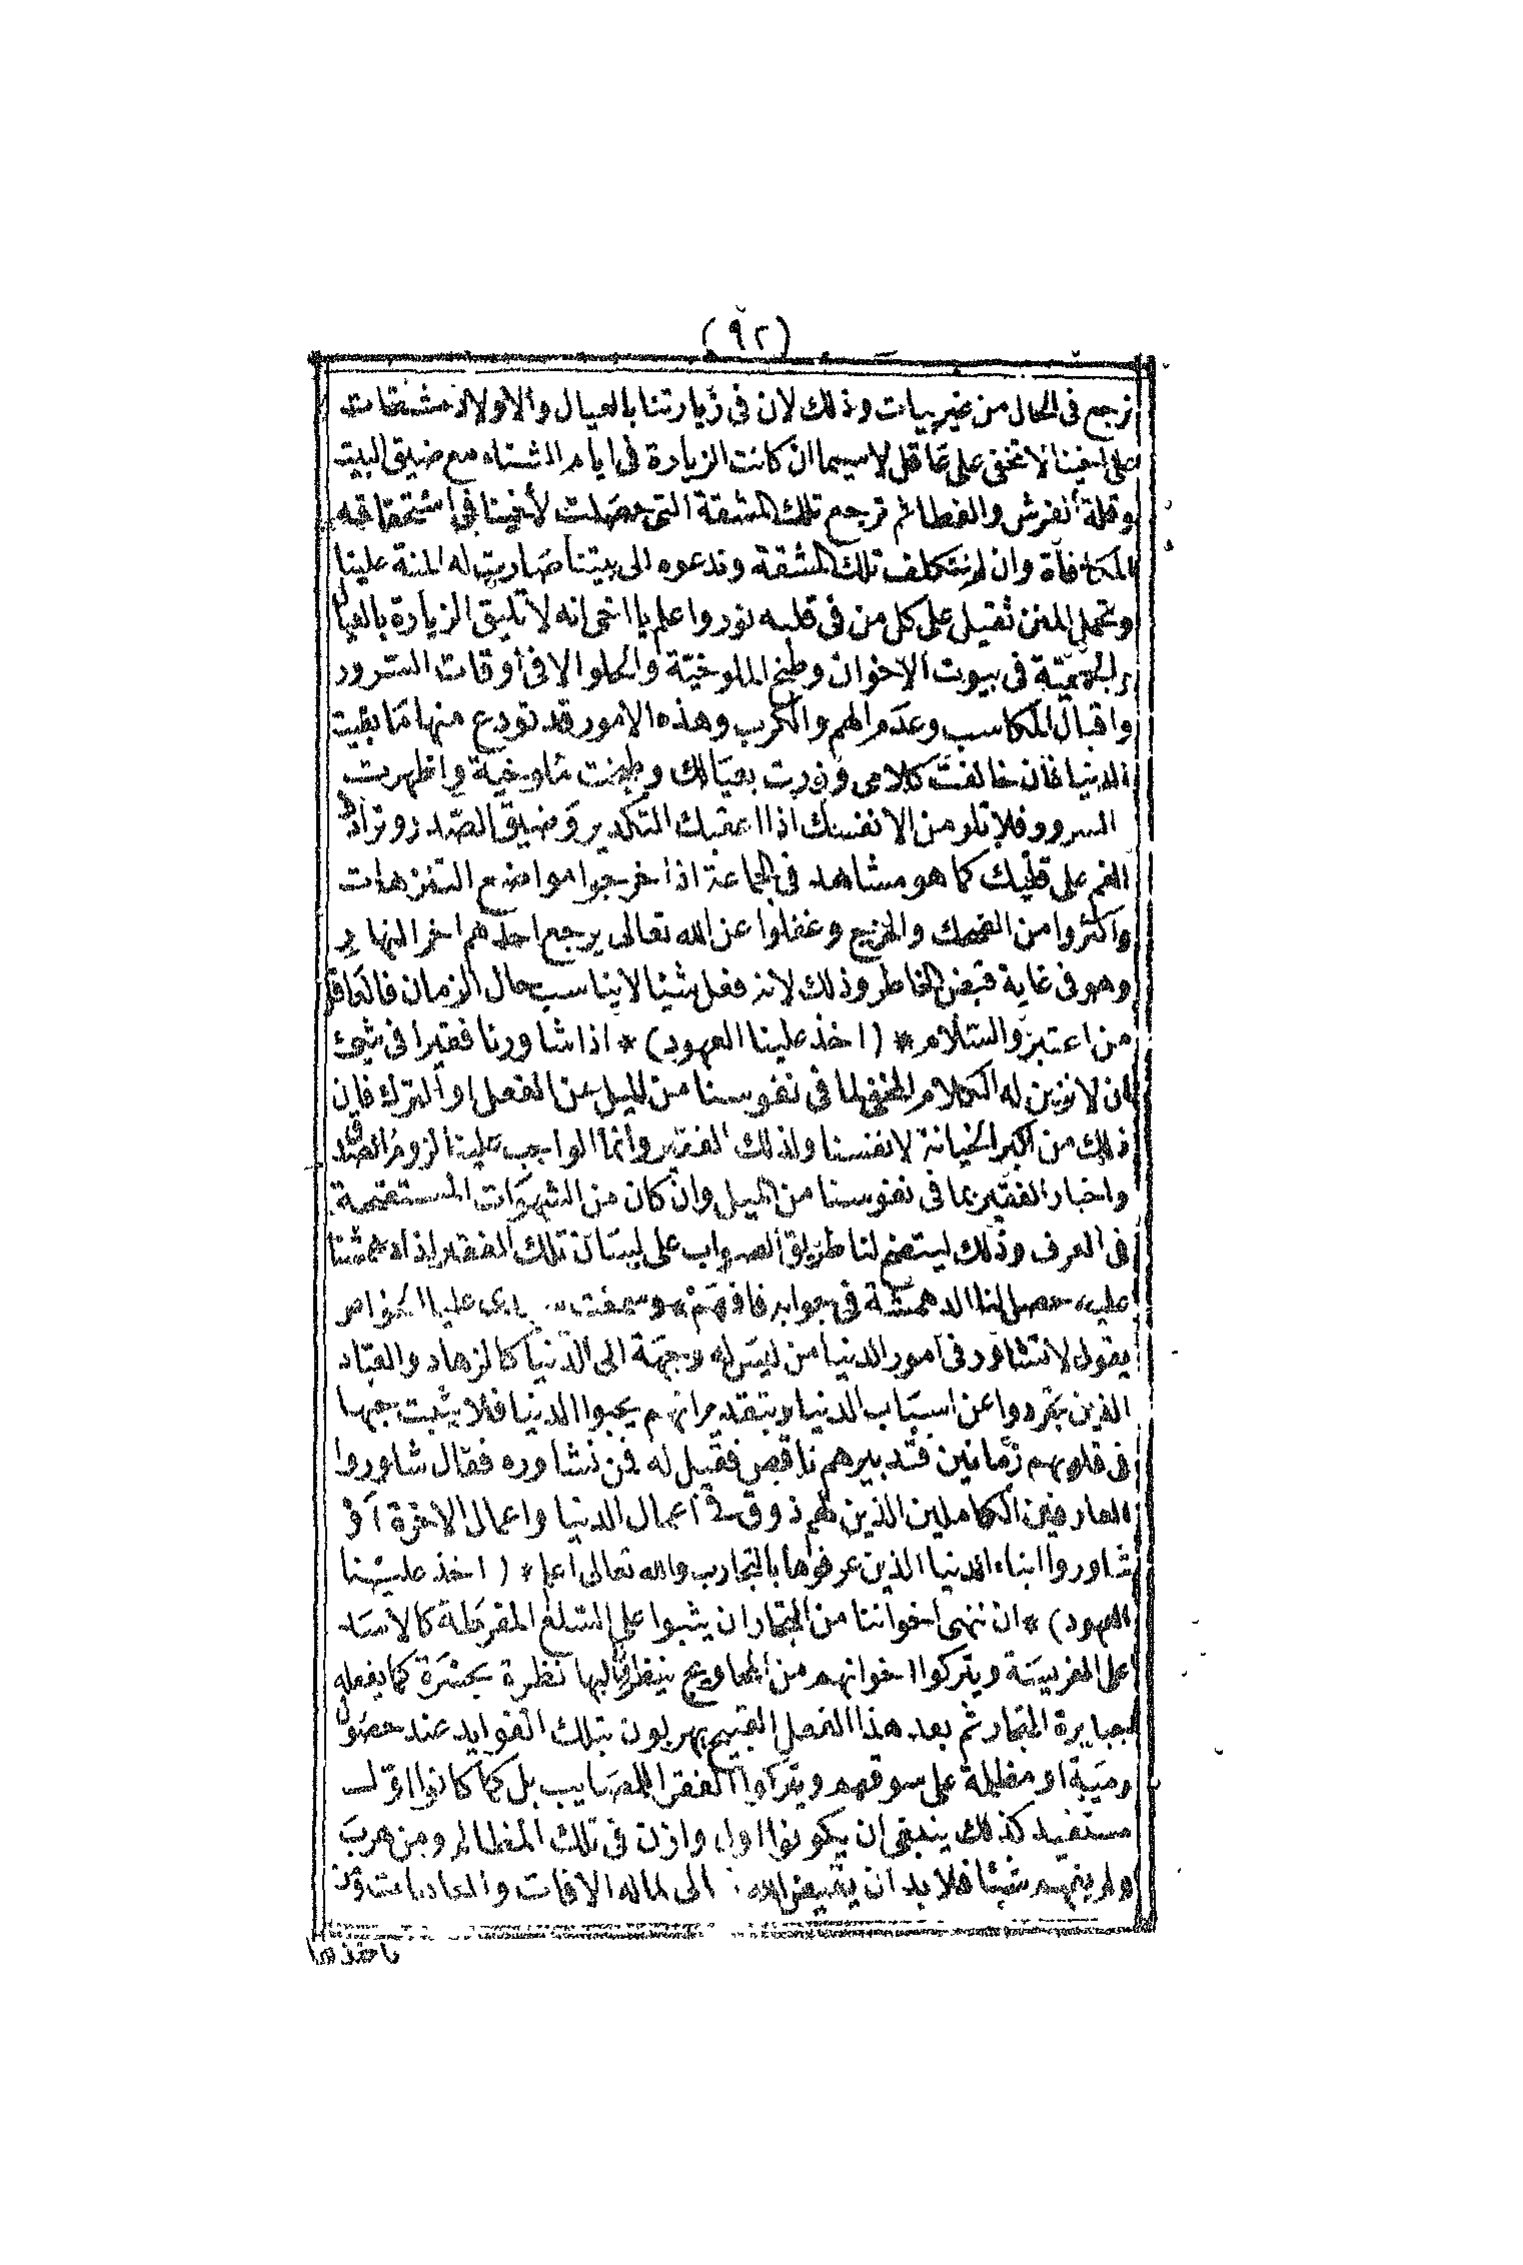 (٩٢)
نرجع فى الحال من غير بيات وذلك لان فى زيارتنا بالعيال والاولاد مشقات
على اخينا لا تخفى على عاقل لاسيما ان كانت الزيارة فى ايام الشتاء مع ضيق البيت
وقلة الفرش والغطا ثم ترجع تلك المشقة التى حصلت لأخينا فى استحقاقه
المكافأة وان لم نتكلف تلك المشقة وندعوه الى بيتنا صارت له المنة علينا
وتحمل المنن ثقيل على كل من فى قلبه نور واعلم يا اخى انه لا تليق الزيارة بالعيال
والجمعية فى بيوت الاخوان وطبخ الملوخية والحلو الا فى أوقات السرور
واقبال المكاسب وعدم الهم والكرب وهذه الامور قد تودع منها ما بقيت
الدنيا فان خالفت كلامى وزرت بعيالك وطبخت ملوخية واظهرت
السرور فلا تلومن الا نفسك اذا اعقبك التكدير وضيق الصدر وتزاد
الغم على قلبك كما هو مشاهد فى الجماعة اذا خرجوا مواضع التنزهات
واكثروا من الضحك والمزيح وغفلوا عن الله تعالى يرجع احدهم اخر النهار
وهو فى غاية قبض الخاطر وذلك لانه فعل شيئا لا يناسب حال الزمان فالعاقل
من اعتبر والسلام * (اخذ علينا العهود) * اذا شاورنا فقيرا فى شئ
ان لا نزين له الكلام المخفى لما فى نفوسنا من الميل من الفعل او الترك فان
ذلك من اكبر الخيانة لانفسنا ولذلك الفقير وانما الواجب علينا لزوم الصدق
واخبار الفقير بما فى نفوسنا من الميل وان كان من الشهوات المستقبحة
فى العرف وذلك ليتضح لنا طريق الصواب على لسان تلك الفقير اذا دهشنا
عليه حصل لنا الدهشة فى جوابه فافهم وسمعت سيدى عليا الخواص
يقول لا تشاور فى امور الدنيا من ليس له وجهة الى الدنيا كالزهاد والعباد
الذين تجردوا عن اسباب الدنيا وبتقدير انهم يحبوا الدنيا فلا يثبت حبها
فى قلوبهم زمانين فتدبيرهم ناقص فقيل له فمن نشاوره فقال شاوروا
العارفين الكاملين الذين لهم ذوق فى أعمال الدنيا واعمال الاخرة أو
شاوروا ابناء الدنيا الذين عرفوها بالتجارب والله تعالى اعلم * (اخذ علينا
العهود) * ان ننهى اخواننا من التجار ان يثبوا على السلع المفرطة كالاسد
على الفريسة ويتركوا اخوانهم من المحاويج ينظروا اليها نظرة بحسرة كما يفعله
جبابرة التجار ثم بعد هذا الفعل القبيح يهربون بتلك الفوايد عند حصول
رمية او مظلمة على سوقهم ويتركوا الفقرا للمصايب بل كما كانوا اول
مستفيد كذلك ينبغى ان يكونوا اول وازن فى تلك المظالم ومن هرب
ولم ينهم شيئا فلا بد ان يقيض الله الى ماله الافات والعاهات
تاخذها